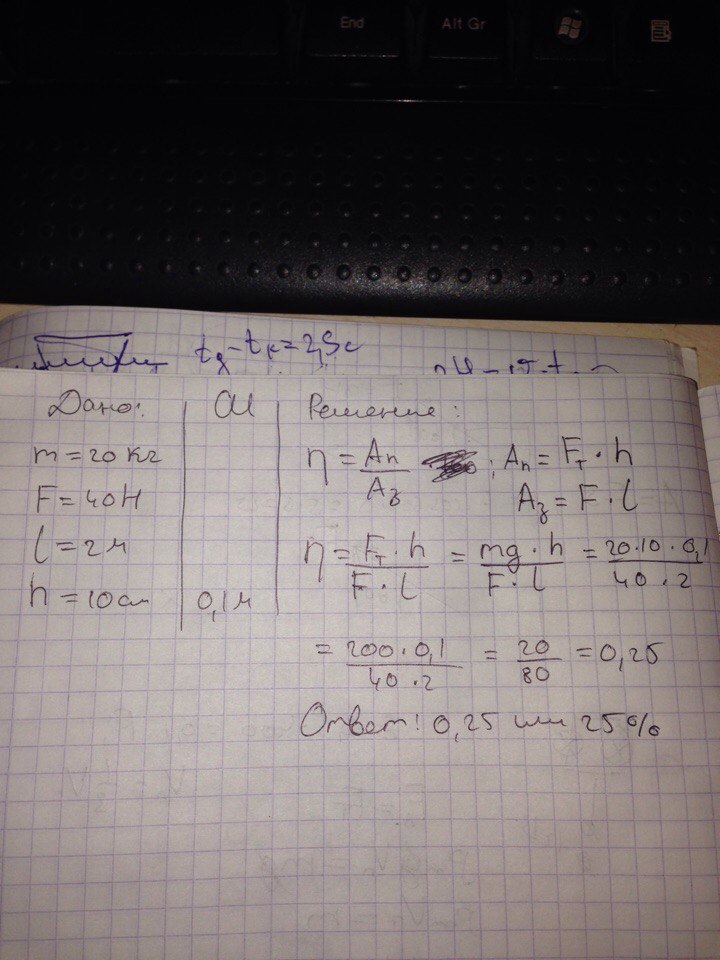 End
Alt Gr
tд - tк = 2,5с
Дано:
СИ
Решение:
m = 20 кг
F = 40Н
l = 2м
h = 10см
0,1м
η = Aп/Aз ; Aп = Fт · h
Aз = F · l
η = Fт · h / F · l = mg · h / F · l = 20 · 10 · 0,1 / 40 · 2
= 200 · 0,1 / 40 · 2 = 20/80 = 0,25
Ответ: 0,25 или 25%